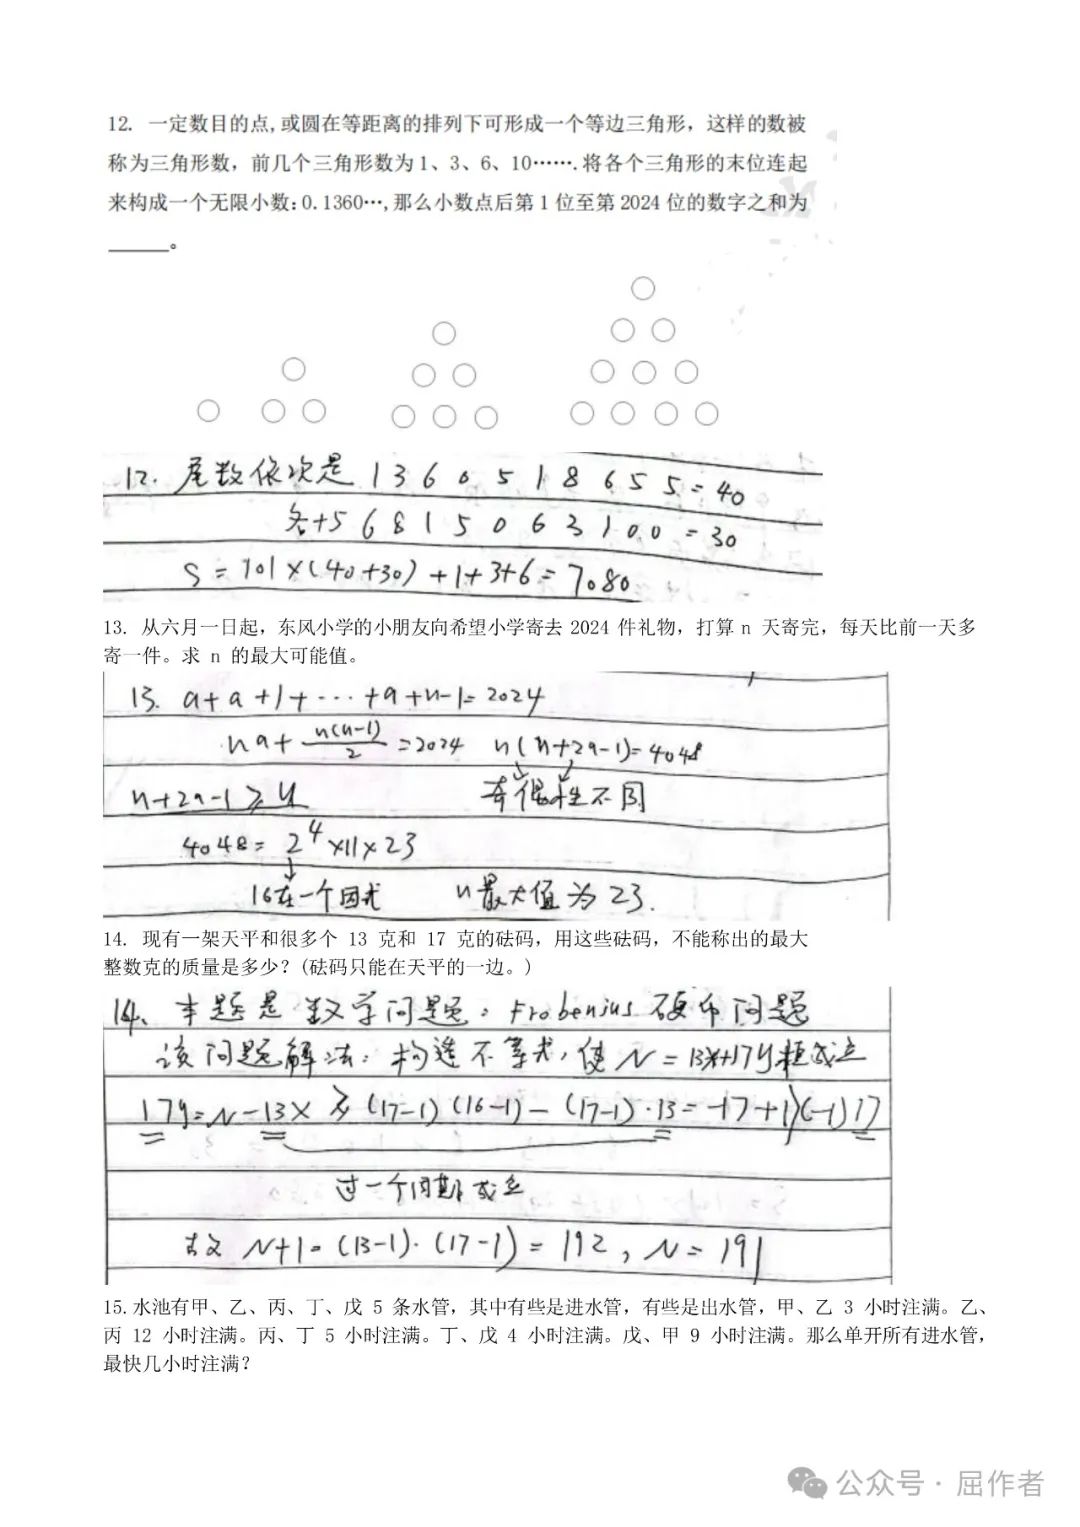 12. 一定数目的点,或圆在等距离的排列下可形成一个等边三角形，这样的数被
称为三角形数，前几个三角形数为1、3、6、10…….将各个三角形的末位连起
来构成一个无限小数:0.1360…,那么小数点后第1位至第2024位的数字之和为
______。
12. 尾数依次是 1 3 6 0 5 1 8 6 5 5 = 40
各+5 6 8 1 5 0 6 3 1 0.0 = 30
S = 101×(40+30)+1+3+6=7080
13. 从六月一日起，东风小学的小朋友向希望小学寄去 2024 件礼物，打算 n 天寄完，每天比前一天多
寄一件。求 n 的最大可能值。
13. a+a+1+…+a+n-1=2024
na+n(n-1)/2=2024 n(n+2a-1)=4048
n+2a-1≥n 奇偶性不同
4048=2^4×11×23
16在一个因式 n最大值为23.
14. 现有一架天平和很多个 13 克和 17 克的砝码，用这些砝码，不能称出的最大
整数克的质量是多少？(砝码只能在天平的一边。)
14、本题是数学问题：Frobenius 硬币问题
该问题解法：构造不等式，使 N=13x+17y恒成立
17y=N-13x≥(17-1)(16-1)-(17-1)·13=-17+1>(-1)17
过一个周期成立
故 N+1=(13-1)·(17-1)=192, N=191
15.水池有甲、乙、丙、丁、戊 5 条水管，其中有些是进水管，有些是出水管，甲、乙 3 小时注满。乙、
丙 12 小时注满。丙、丁 5 小时注满。丁、戊 4 小时注满。戊、甲 9 小时注满。那么单开所有进水管，
最快几小时注满？
公众号·屈作者